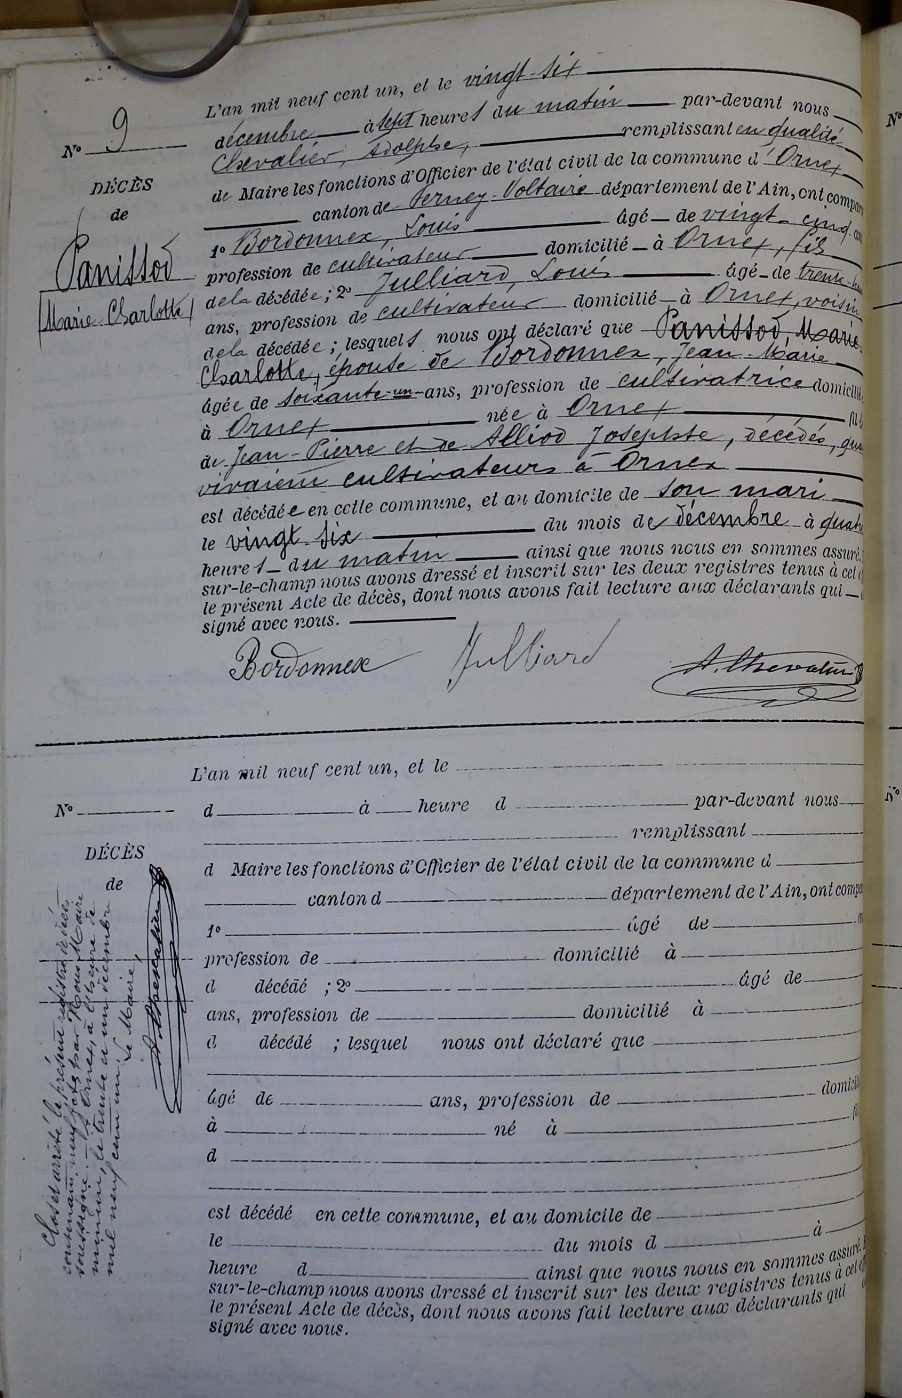 L'an mil neuf cent un, et le vingt-six
Nº 9
décembre à sept heures du matin par-devant nous
Chevalier, Adolphe, remplissant en qualité
DÉCÈS
de
Panissod
Marie Charlotte
de Maire les fonctions d'Officier de l'état civil de la commune d'Ornex
canton de Ferney-Voltaire département de l'Ain, ont compar
1º Bordonnex, Louis âgé de vingt-cinq an
profession de cultivateur domicilié à Ornex, fils
de la décédée; 2º Julliard, Louis âgé de trente-
ans, profession de cultivateur domicilié à Ornex, voisin
de la décédée; lesquels nous ont déclaré que Panissod, Marie
Charlotte, épouse de Bordonnex, Jean-Marie
âgée de soixante-un ans, profession de cultivatrice domicilié
à Ornex née à Ornex
de Jean-Pierre et de Alliod Josephte, décédés,
vivaient cultivateurs à Ornex
est décédée en cette commune, et au domicile de son mari
le vingt-six du mois de décembre à quatr
heures du matin ainsi que nous nous en sommes assuré.
sur-le-champ nous avons dressé et inscrit sur les deux registres tenus à cet
le présent Acte de décès, dont nous avons fait lecture aux déclarants qui
signé avec nous.
Bordonnex Julliard A. Chevalier
L'an mil neuf cent un, et le
Nº
d à heure d par-devant nous
remplissant
DÉCÈS
de
d Maire les fonctions d'Officier de l'état civil de la commune d
canton d département de l'Ain, ont compa
1º âgé de
profession de domicilié à
d décédé ; 2º âgé de
ans, profession de domicilié à
d décédé ; lesquel nous ont déclaré que
âgé de ans, profession de domicilié
à né à
d
est décédé en cette commune, et au domicile de
le du mois d à
heure d ainsi que nous nous en sommes assuré.
sur-le-champ nous avons dressé et inscrit sur les deux registres tenus à cet
le présent Acte de décès, dont nous avons fait lecture aux déclarants qui
signé avec nous.
Clos et arrêté le présent registre de décès
contenant neuf actes par Nous Maire
soussigné. A Ornex, à l'heure de
minuit, le trente et un décembre
mil neuf cent un.
Le Maire,
A. Chevalier
Nº
Nº